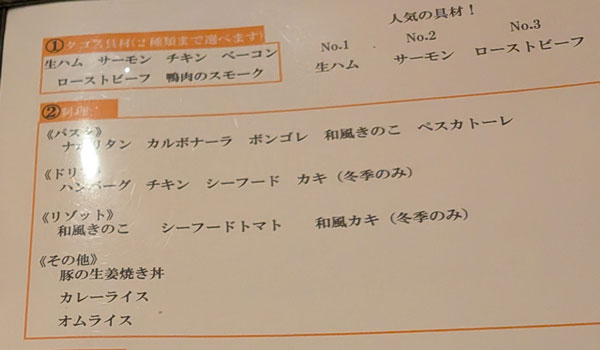 人気の具材！
①タコス具材(2種類まで選べます)
生ハム サーモン チキン ベーコン
ローストビーフ 鴨肉のスモーク
No.1 No.2 No.3
生ハム サーモン ローストビーフ
②料理
《パスタ》
ナポリタン カルボナーラ ボンゴレ 和風きのこ ペスカトーレ
《ドリア》
ハンバーグ チキン シーフード カキ（冬季のみ）
《リゾット》
和風きのこ シーフードトマト 和風カキ（冬季のみ）
《その他》
豚の生姜焼き丼
カレーライス
オムライス